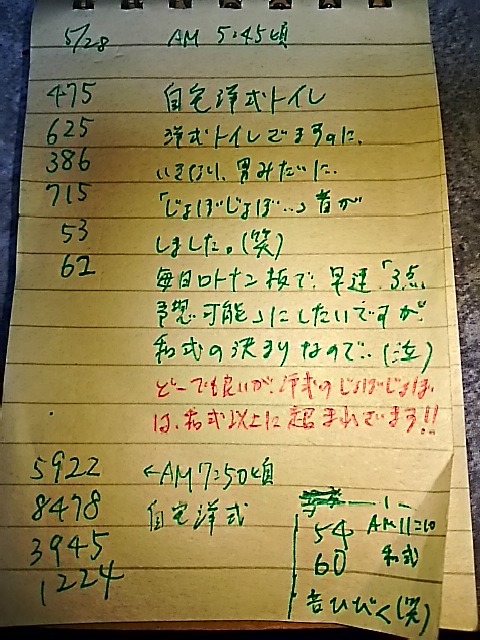 5/28 AM 5:45頃
475 自宅洋式トイレ
625 洋式トイレでますのに、
386 いきなり、男みたいに、
715 「じょぼじょぼ…」音が
53 しました。(笑)
62 毎日ロトナン板で、早速、「3点
予想可能」にしたいですが
和式の決まりなので、(泣)
どーでも良いが、洋式のじょぼじょぼ
は、和式以上に超まれでます!!
5922 ←AM7:50頃
8478 自宅洋式
3945
1224
54 AM11:10
60 和式
音ひびく(笑)